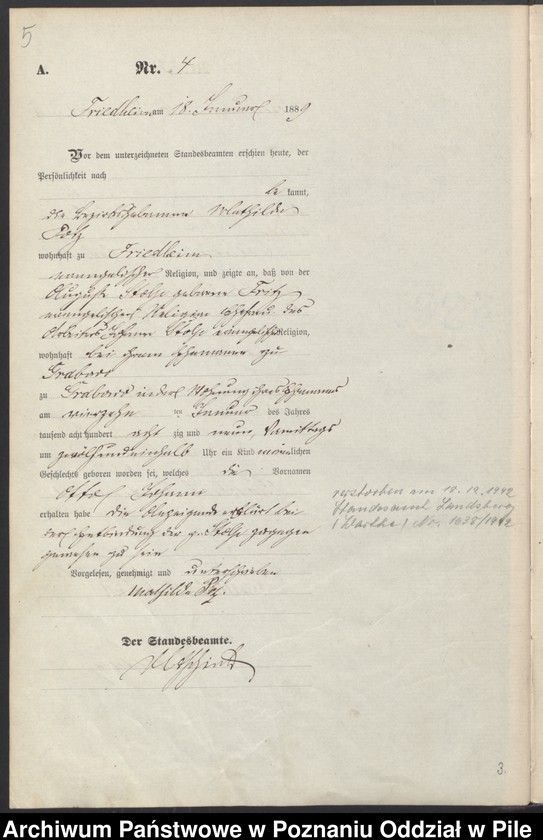 5
A. Nr. 4
Friedheim am 18. Januar 1889
Vor dem unterzeichneten Standesbeamten erschien heute, der
Persönlichkeit nach
be kannt,
die Bezirkshebamme Mathilde
wohnhaft zu Friedheim
evangelischer Religion, und zeigte an, daß von der
August Stolse geboren Fritz
evangelischer Religion Ehefrau des
Arbeiters Johann Stolse evangelischer Religion,
wohnhaft bei ihrem Ehemanne zu
Grabowo
zu Grabowo in der Wohnung ihres Ehemannes
am vierzehn ten Januar des Jahres
tausend acht hundert acht zig und neun, Vormittags
um zwölfundeinhalb Uhr ein Kind männlichen
Geschlechts geboren worden sei, welches die Vornamen
Otto Johann
erhalten habe die Anzeigende erklärt bei
der Entbindung der p. Stolse zugegen
gewesen zu sein
Vorgelesen, genehmigt und unterschrieben
Mathilde
Der Standesbeamte.
verstorben am 15. 12. 1942
Standesamt Landsberg
(Warthe) No. 1655/1942
3.
Archiwum Państwowe w Poznaniu Oddział w Pile